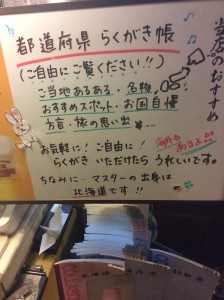 都道府県 らくがき帳
(ご自由にご覧ください!!)
ご当地あるある・名物
おすすめスポット・お国自慢
方言・旅の思い出
お気軽に!ご自由に!
らくがきいただけたら うれしいです。
海外も
あるよ!!
ちなみに… マスターの出身は
北海道です!!
当店のおすすめ
北海道